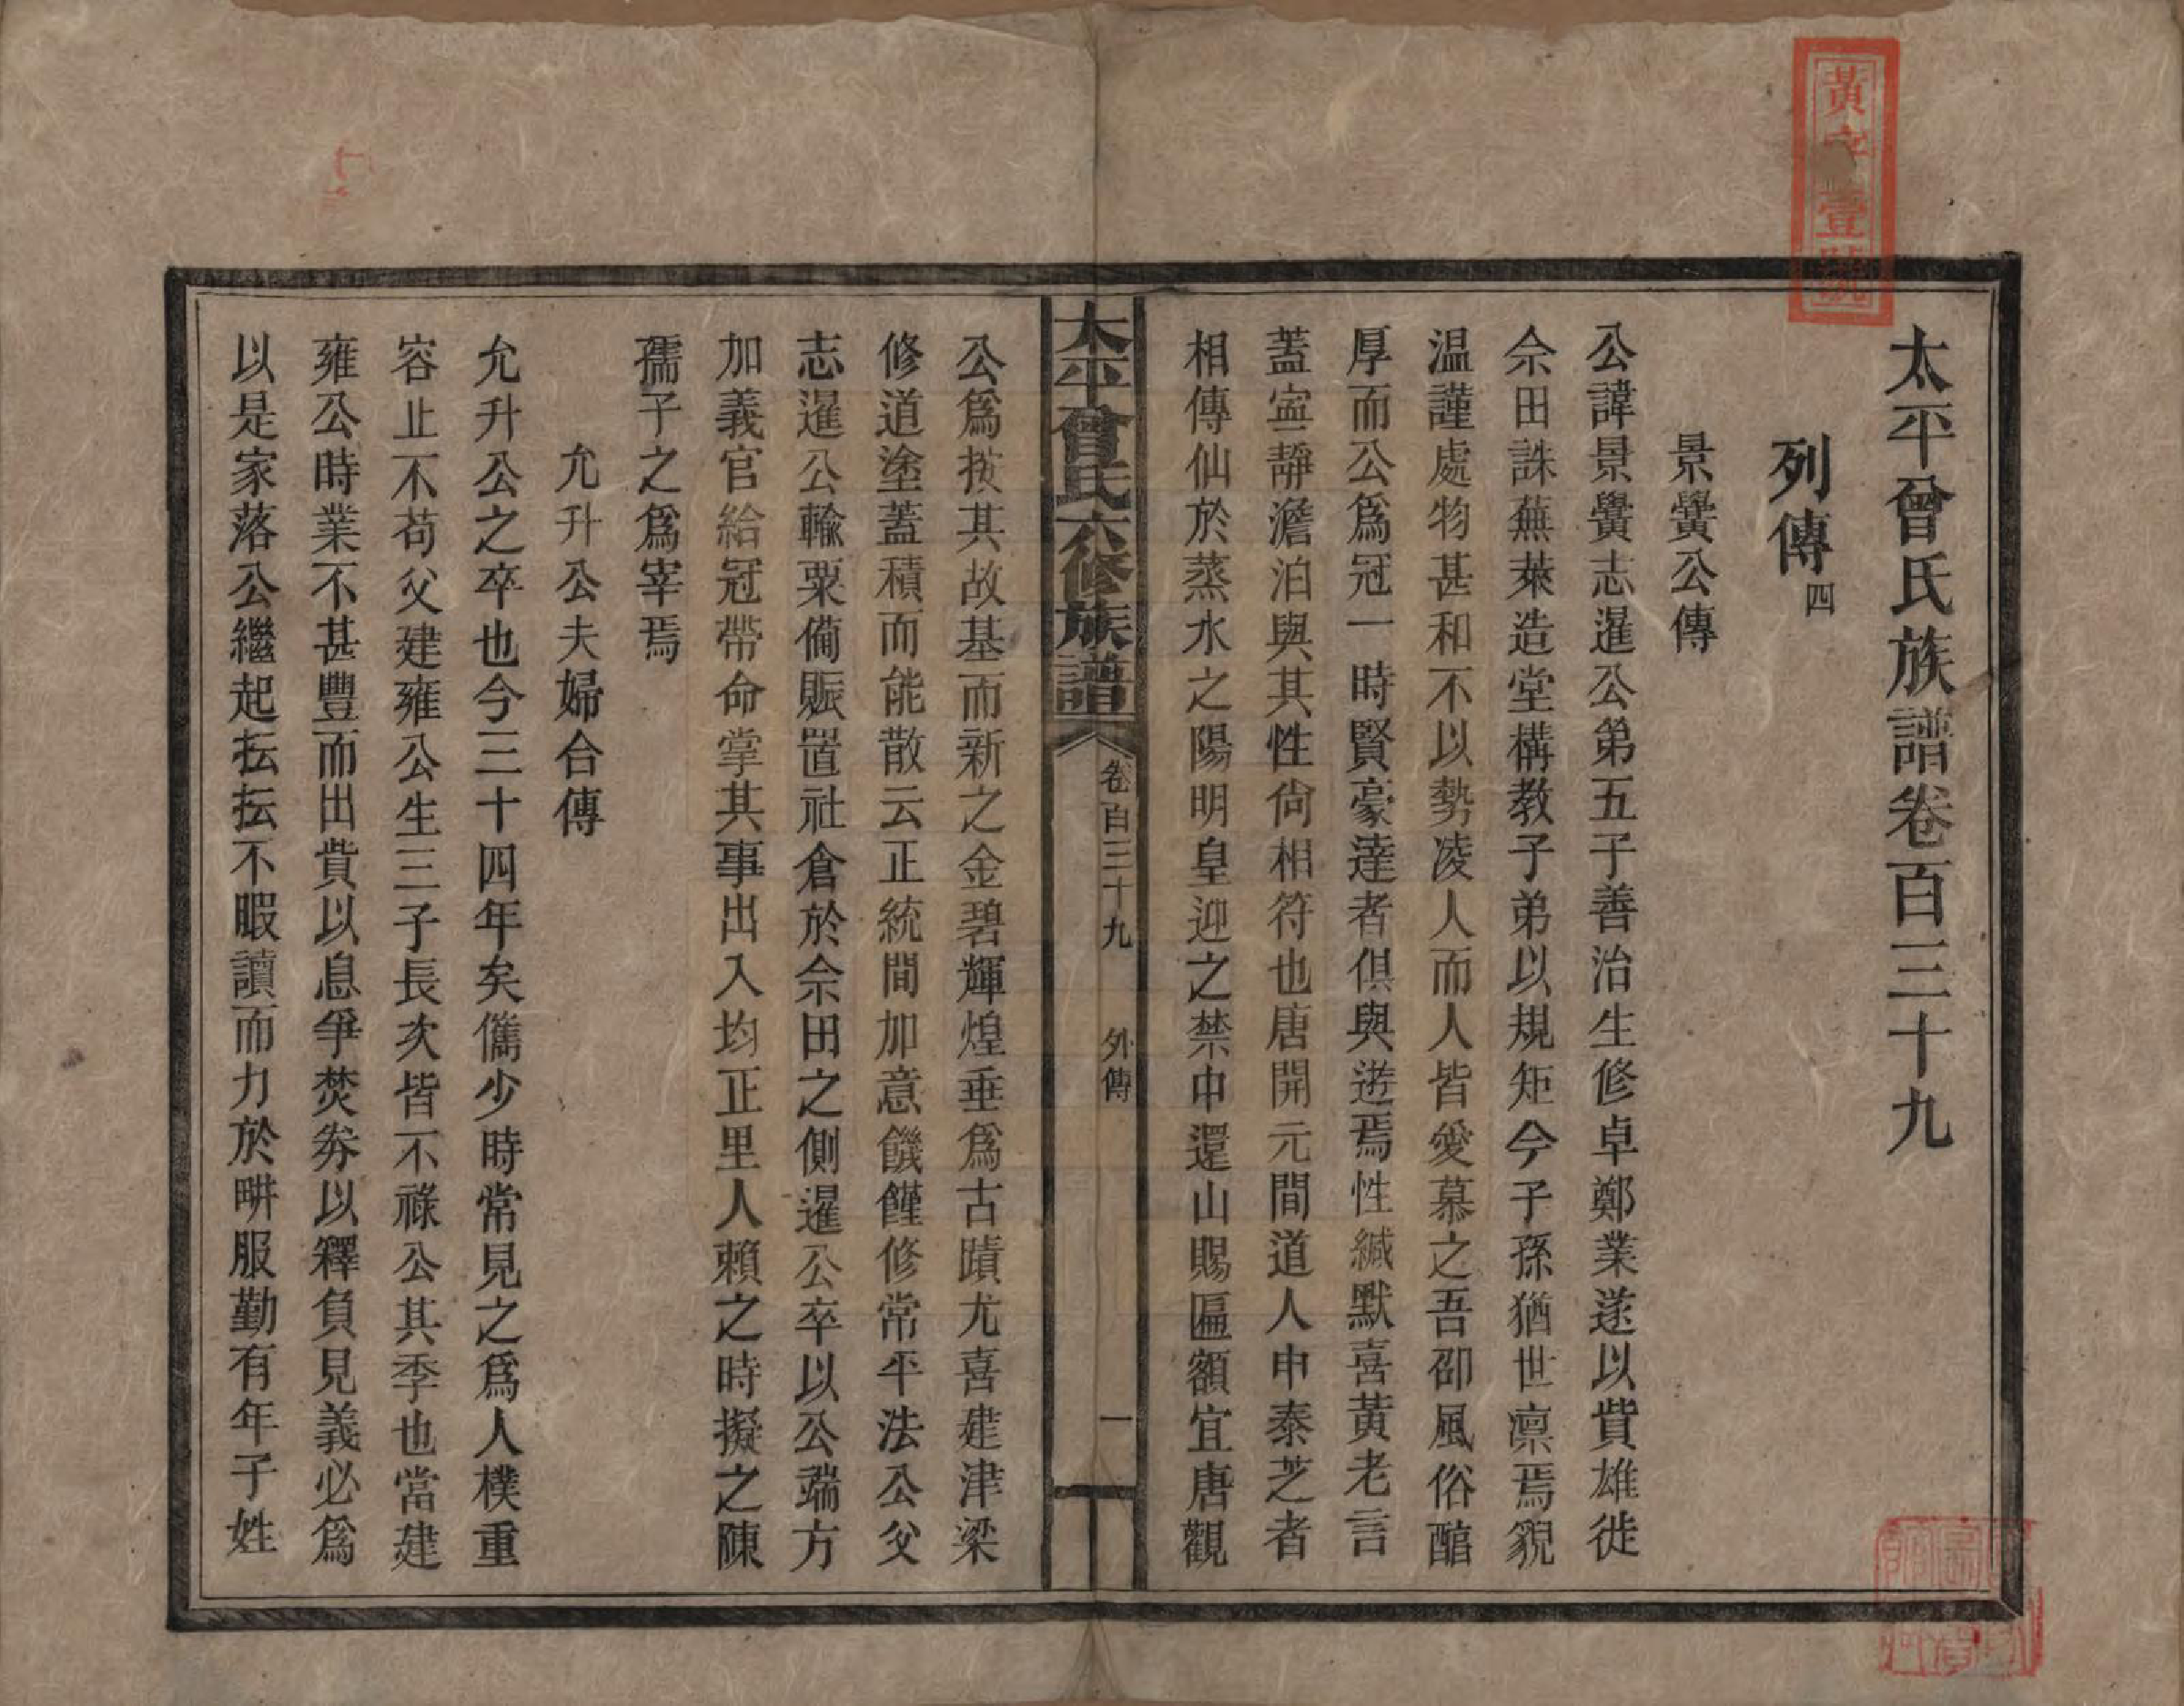 太平曾氏族譜卷百三十九
列傳四
景黌公傳
公諱景黌志暹公第五子善治生修卓鄭業遂以貲雄徙
佘田誅蕪萊造堂構教子弟以規矩今子孫猶世凛焉貌
温謹處物甚和不以勢凌人而人皆愛慕之吾邵風俗醕
厚而公爲冠一時賢豪達者俱與遊焉性緘默喜黃老言
蓋寍靜澹泊與其性尙相符也唐開元間道人申泰芝者
相傳仙於蒸水之陽明皇迎之禁中還山賜匾額宜唐觀
太平曾氏六修族譜 卷百三十九 外傳 一
公爲拔其故基而新之金碧輝煌垂爲古蹟尤喜建津梁
修道塗蓋積而能散云正統間加意饑饉修常平法公父
志暹公輸粟備賑置社倉於佘田之側暹公卒以公端方
加義官給冠帶命掌其事出入均正里人賴之時擬之陳
孺子之爲宰焉
允升公夫婦合傳
允升公之卒也今三十四年矣儁少時常見之爲人樸重
容止不苟父建雍公生三子長次皆不祿公其季也當建
雍公時業不甚豐而出貲以息爭焚券以釋負見義必爲
以是家落公繼起抎抎不暇讀而力於畊服勤有年子姓
黃字壹號